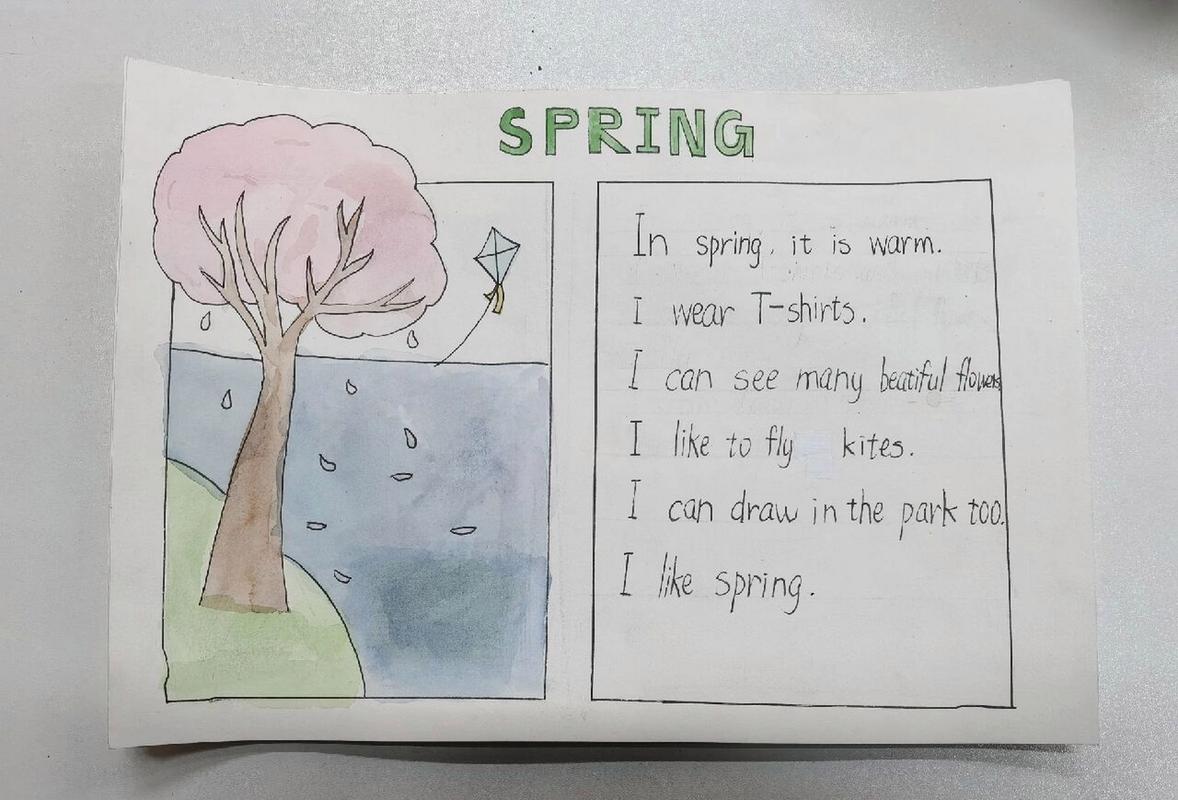 SPRING
In spring, it is warm.
I wear T-shirts.
I can see many beatiful flowers
I like to fly kites.
I can draw in the park too.
I like spring.